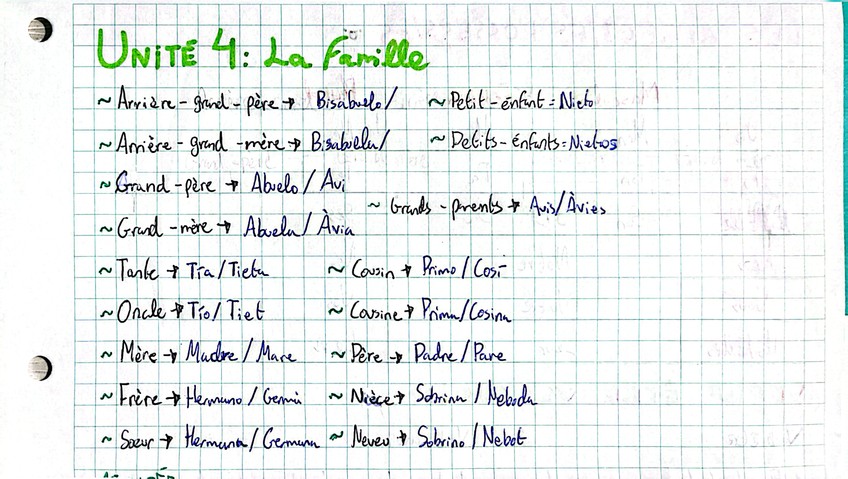 UNITÉ 4: La Famille
~ Arrière-grand-père → Bisabuelo/ ~ Petit-énfant = Nieto
~ Arrière-grand-mère → Bisabuela/ ~ Petits-énfants = Nietos
~ Grand-père → Abuelo / Avi
~ Grands-parents → Avis/Àvies
~ Grand-mère → Abuela / Àvia
~ Tante → Tía/Tieta ~ Cousin → Primo / Cosí
~ Oncle → Tío/Tiet ~ Cousine → Prima/Cosina
~ Mère → Madre / Mare ~ Père → Padre / Pare
~ Frère → Hermano / Germà ~ Nièce → Sobrina / Neboda
~ Sœur → Hermana / Germana ~ Neveu → Sobrino / Nebot